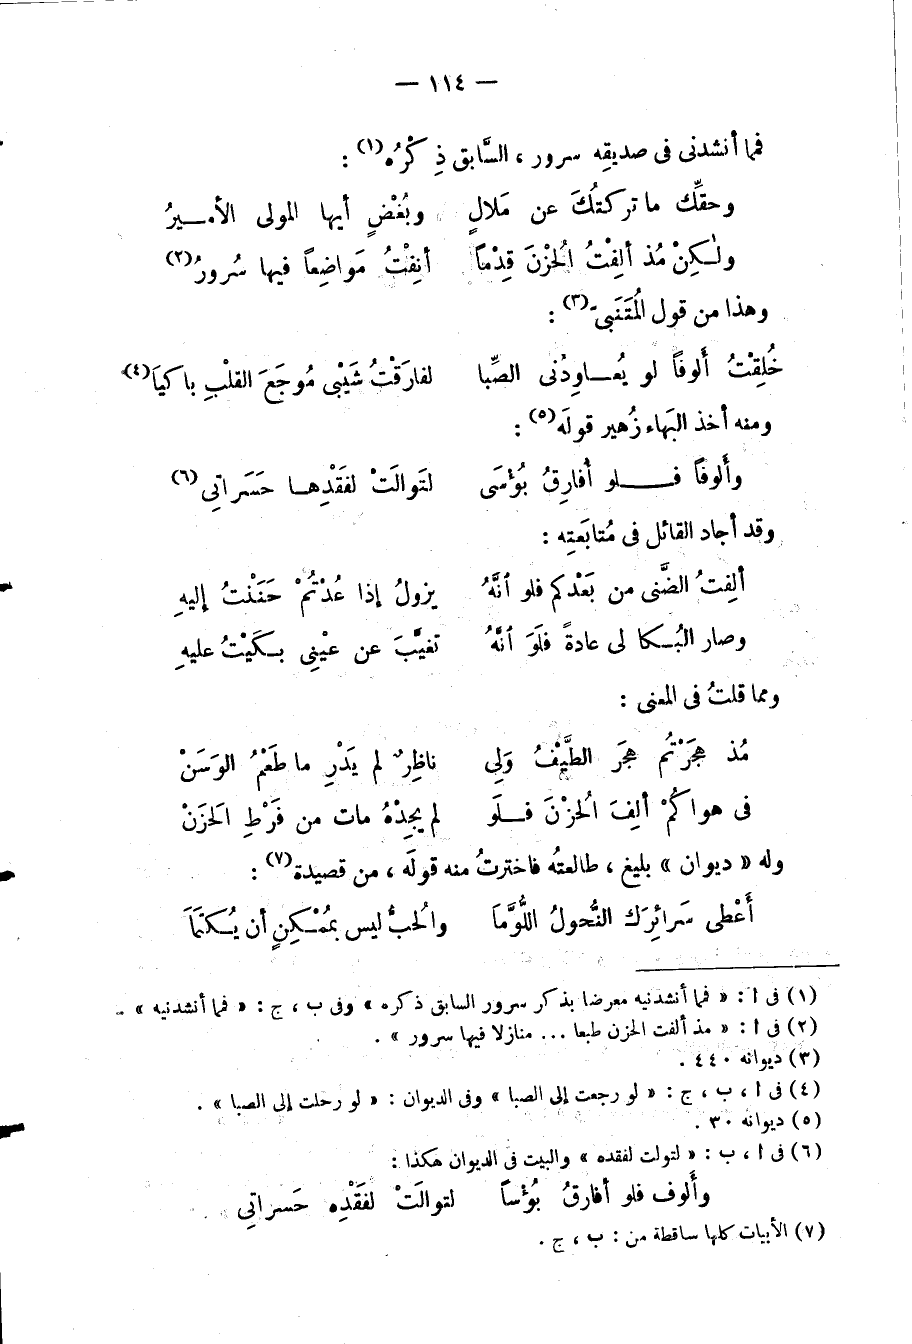 — ١١٤ —
فما أنشدنى فى صديقِه سرور ، السَّابق ذِكْرُه(١) :
وحقِّك ما تركتُكَ عن مَلالٍ وبُغْضٍ أيها المولى الأمـــيرُ
ولٰـكِنْ مُذ ألِفْتُ الحُزْنَ قِدْماً أنِفْتُ مَواضِعاً فيها سُرورُ(٢)
وهذا من قول المُتَنَبىّ(٣) :
خُلِقْتُ أَلوفاً لو يُعـــاوِدُنى الصِّبا لفارَقْتُ شَيْبى مُوجَعَ القلْبِ باكيَا(٤)
ومنه أخذ البَهاء زُهير قولَه(٥) :
وأَلوفاً فـــــلو أُفارِقُ بُؤْسَى لتَوالَتْ لفَقْدِهـا حَسَراتِى(٦)
وقد أجاد القائل فى مُتابَعتِه :
ألِفتُ الضَّنى من بَعْدكم فلو ٱنَّهُ يزولُ إذا عُدْتُمْ حَنَنْتُ إليهِ
وصار البُـكا لى عادةً فلَوَ ٱنَّهُ تغيَّبَ عن عيْنِى بـكَيْتُ عليهِ
ومما قلتُ فى المعنى :
مُذ هجَرْتُم هجَرَ الطَّيْفُ وَلِى ناظِرٌ لم يَدْرِ ما طَعْمُ الوَسَنْ
فى هواكُمْ ألِفَ الحُزْنَ فـلَو لم يجِدْهُ مات من فَرْطِ الحَزَنْ
وله « ديوان » بليغ ، طالعتُه فاخترتُ منه قولَه ، من قصيدة(٧) :
أَعْطى سَرائِرَك النُّحولُ اللُّوَّمَا والحُبُّ ليس بمُمْـكِنٍ أن يُـكتَمَا
(١) فى ا : « فما أنشدنيه معرضا بذكر سرور السابق ذكره » وفى ب ، ج : « فما أنشدنيه » .
(٢) فى ا : « مذ ألفت الحزن طبعا ... منازلا فيها سرور » .
(٣) ديوانه ٤٤٠ .
(٤) فى ا ، ب ، ج : « لو رجعت إلى الصبا » وفى الديوان : « لو رحلت إلى الصبا » .
(٥) ديوانه ٣٠ .
(٦) فى ا ، ب : « لتولت لفقده » والبيت فى الديوان هكذا :
وأَلوف فلو أفارقُ بُؤْساً لتوالَتْ لفَقْدِه حَسراتِى
(٧) الأبيات كلها ساقطة من : ب ، ج .